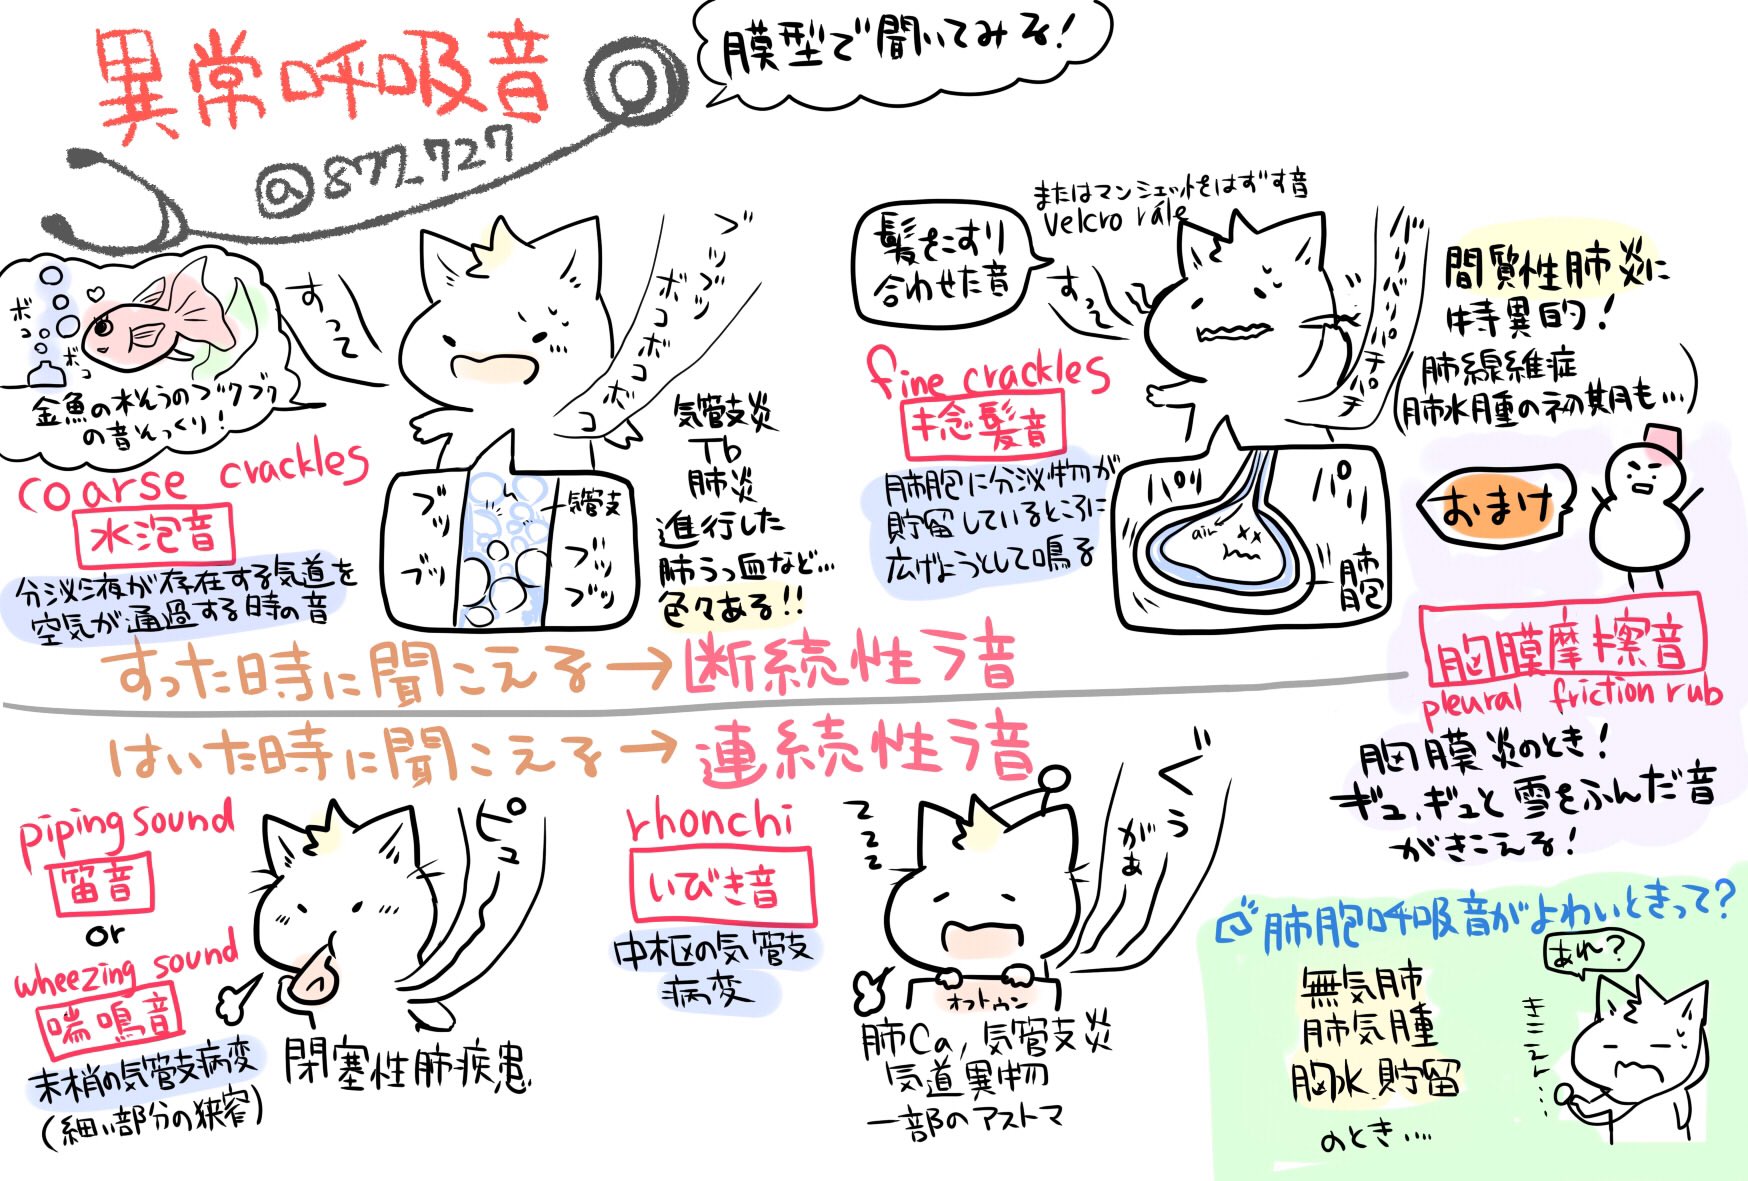 異常呼吸音
@877_727
膜型で聞いてみる!
すって
ブツブツ
ボコボコボコ
ボコ
ボコ
金魚の水そうのブクブク
の音そっくり!
coarse crackles
水泡音
分泌液が存在する気道を
空気が通過する時の音
ブッ
ブツ
気管支
ブッ
ブツ
気管支炎
Tb
肺炎
進行した
肺うっ血など…
色々ある!!
またはマンシェットをはずす音
velcro rale
髪をこすり
合わせた音
すって
バリバリバリパチパチ
fine crackles
捻髪音
肺胞に分泌物が
貯留しているところに
広げようとして鳴る
パリ
パリ
air
肺胞
間質性肺炎に
特異的!
(肺線維症
肺水腫の初期も…)
おまけ
胸膜摩擦音
pleural friction rub
胸膜炎のとき!
ギュ、ギュと雪をふんだ音
がきこえる!
すった時に聞こえる→断続性ラ音
はいた時に聞こえる→連続性ラ音
piping sound
笛音
or
wheezing sound
喘鳴音
末梢の気管支病変
(細い部分の狭窄)
ピュー
閉塞性肺疾患
rhonchi
いびき音
中枢の気管支
病変
ててて
ぐうー
があー
オフトゥン
肺Ca,気管支炎
気道異物
一部のアストマ
肺胞呼吸音がよわいときって?
あれ?
無気肺
肺気腫
胸水貯留
のとき….
きこえん…